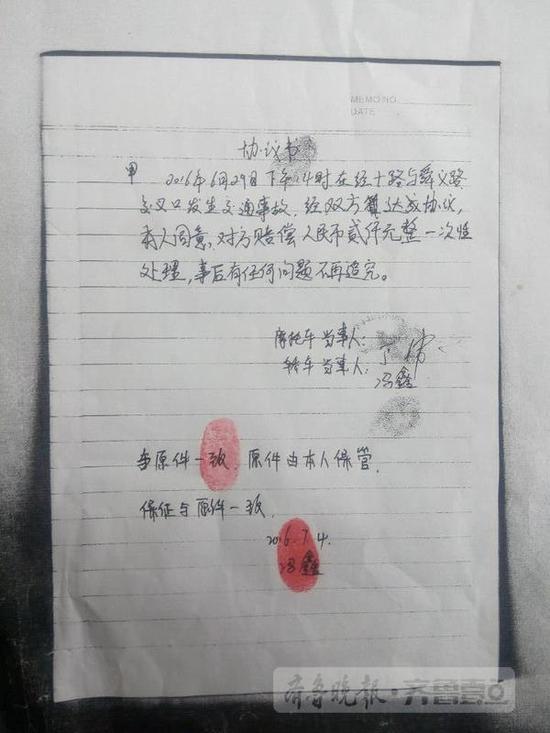 MEMO NO.
DATE
协议书
甲
2016年6月29日下午14时在经十路与舜义路
交叉口发生交通事故,经双方 达成协议,
本人同意,对方赔偿人民币贰仟元整一次性
处理,事后有任何问题不再追究。
摩托车当事人:
轿车当事人:
冯鑫
与原件一致,原件由本人保管,
保证与原件一致.
2016.7.4.
冯鑫
齐鲁晚报·齐鲁壹点